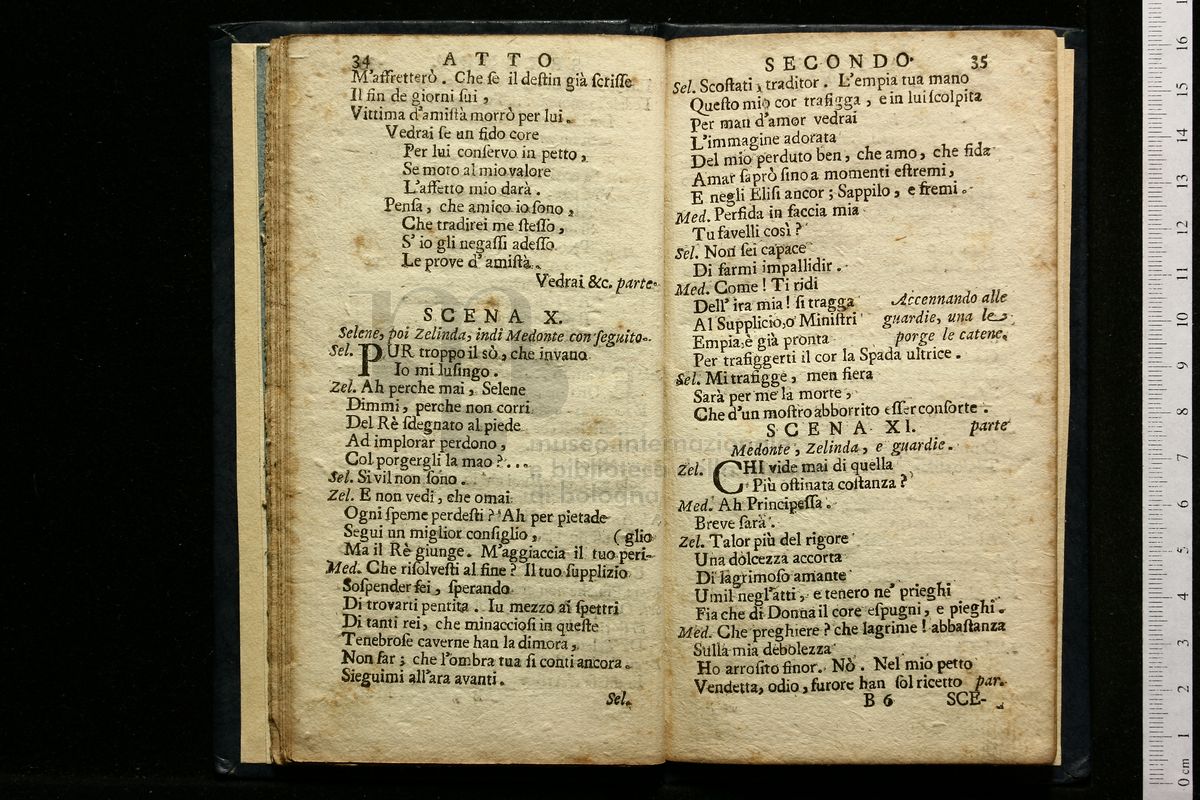 34 ATTO
M'affretterò. Che ſe il deſtin già ſcriſſe
Il fin de giorni ſui,
Vittima d'amiſtà morrò per lui.
Vedrai ſe un fido core
Per lui conſervo in petto,
Se moto al mio valore
L'affetto mio darà.
Penſa, che amico io ſono,
Che tradirei me ſteſſo,
S'io gli negaſſi adeſſo
Le prove d'amiſtà.
Vedrai &c. parte.
SCENA X.
Selene, poi Zelinda, indi Medonte con ſeguito.
Sel. PUR troppo il sò, che invano
Io mi luſingo.
Zel. Ah perche mai, Selene
Dimmi, perche non corri
Del Rè ſdegnato al piede
Ad implorar perdono,
Col porgergli la mao?...
Sel. Sì vil non ſono.
Zel. E non vedi, che omai
Ogni ſpeme perdeſti? Ah per pietade
Segui un miglior conſiglio, (glio
Ma il Rè giunge. M'aggiaccia il tuo peri-
Med. Che riſolveſti al fine? Il tuo ſupplizio
Soſpender fei, ſperando
Di trovarti pentita. Iu mezzo ai ſpettri
Di tanti rei, che minaccioſi in queſte
Tenebroſe caverne han la dimora,
Non far; che l'ombra tua ſi conti ancora.
Sieguimi all'ara avanti.
Sel.
SECONDO. 35
Sel. Scoſtati, traditor. L'empia tua mano
Queſto mio cor trafigga, e in lui ſcolpita
Per man d'amor vedrai
L'immagine adorata
Del mio perduto ben, che amo, che fida
Amar ſaprò ſino a momenti eſtremi,
E negli Eliſi ancor; Sappilo, e fremi.
Med. Perfida in faccia mia
Tu favelli così?
Sel. Non ſei capace
Di farmi impallidir.
Med. Come! Ti ridi
Dell'ira mia! ſi tragga Accennando alle
Al Supplicio, o Miniſtri guardie, una le
Empia, è già pronta porge le catene.
Per trafiggerti il cor la Spada ultrice.
Sel. Mi trafigge, men fiera
Sarà per me la morte,
Che d'un moſtro abborrito eſſer conſorte.
SCENA XI. parte
Medonte, Zelinda, e guardie.
Zel. CHI vide mai di quella
Più oſtinata coſtanza?
Med. Ah Principeſſa.
Breve ſarà.
Zel. Talor più del rigore
Una dolcezza accorta
Di lagrimoſo amante
Umil negl'atti, e tenero ne' prieghi
Fia che di Donna il core eſpugni, e pieghi.
Med. Che preghiere? che lagrime! abbaſtanza
Sulla mia debolezza
Ho arroſito finor. Nò. Nel mio petto
Vendetta, odio, furore han ſol ricetto par.
B 6 SCE-
museo internazionale
e biblioteca
di bologna